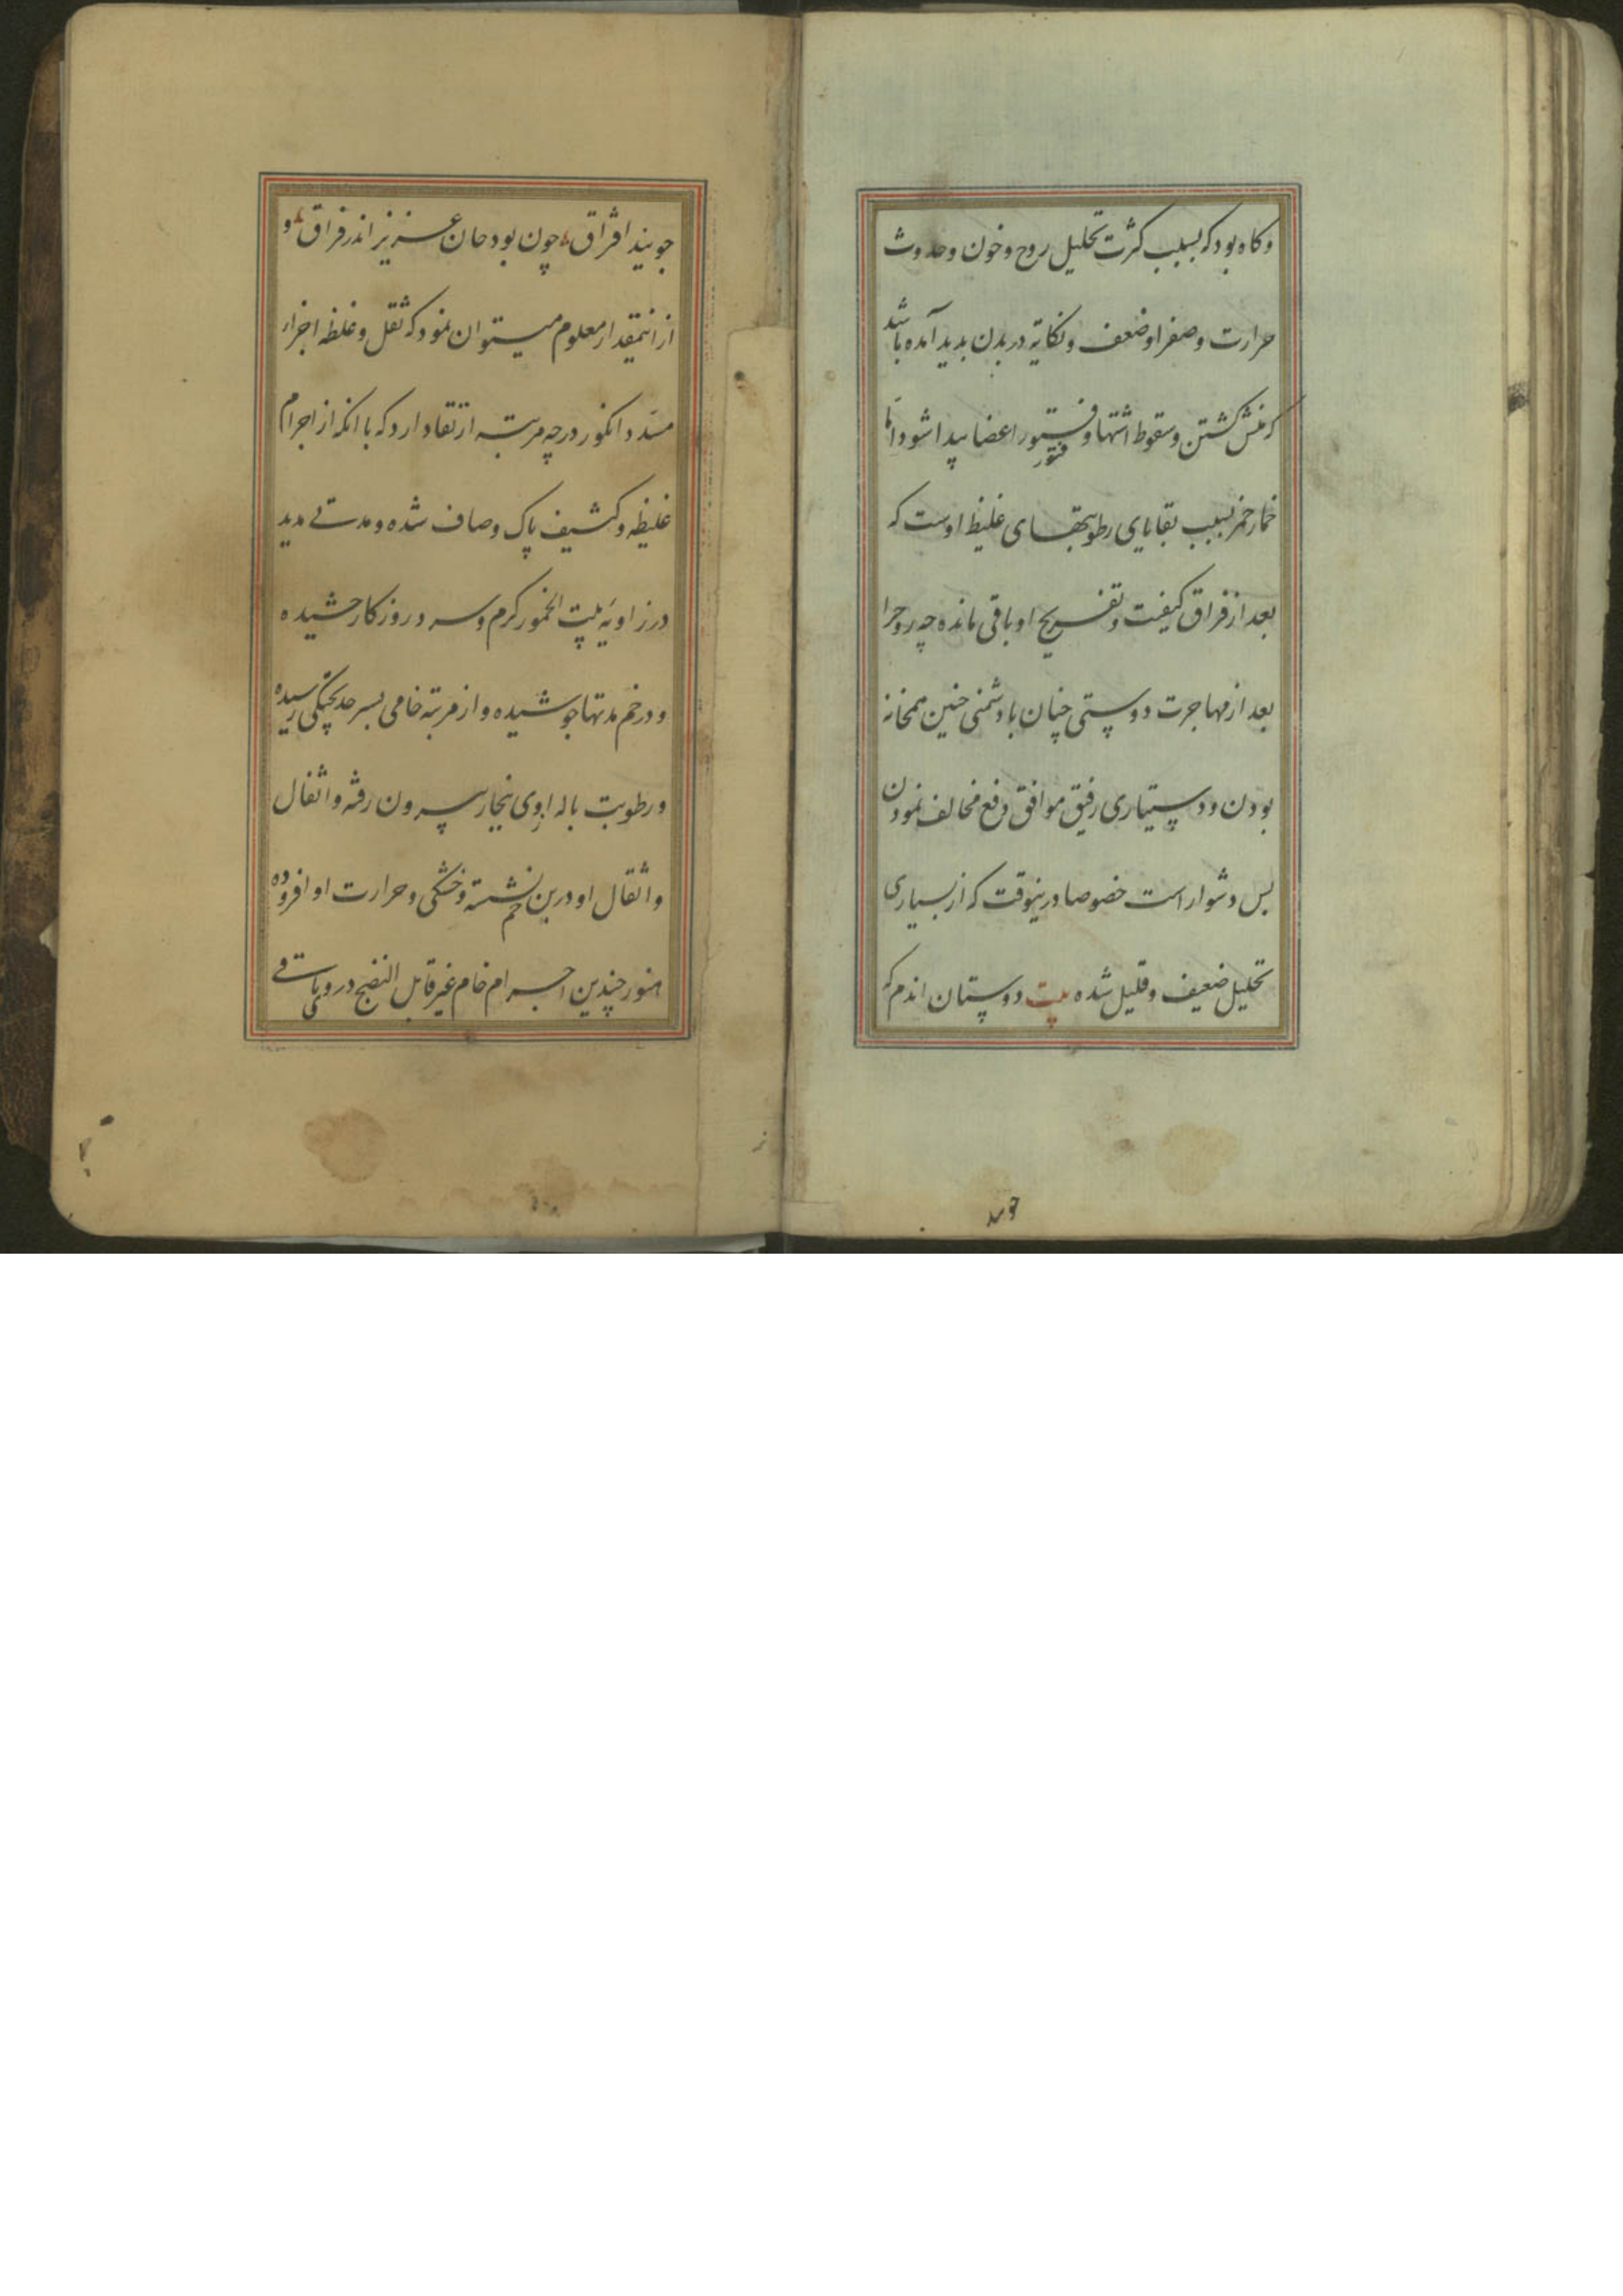 وکاه بود که بسبب کثرت تحلیل روح و خون و حدوث
حرارت و صفرا و ضعف و نکایة در بدن بدید آمده باشد
کشتن و سقوط اشتها و فتور اعضا پیدا شود اما
فتور
خمار خمر بسبب بقایای رطوبتهای غلیظ اوست که
بعد از فراق کیفیت و تفریح او باقی مانده چه روح را
بعد از مهاجرت دوستی چنان با دشمنی چنین همخانه
بودن و دستیاری رفیق موافق دفع مخالف نمودن
بس دشوار است خصوصا درینوقت که از بسیاری
تحلیل ضعیف و قلیل شده بیت دوستان اندم که
جویند افراق چون بود جان عزیز اندر فراق و
ازانمقدار معلوم میتوان نمود که ثقل و غلظ اجزاء
انکور در چه مرتبه از تقاد دارد که با انکه از اجرام
غلیظه و کثیف پاک و صاف شده و مدتی مدید
در زاویهٔ بیت الخمور کرم و سرد روزکار چشیده
و در خم مدتها جوشیده و از مرتبه خامی بسرحد پختکی رسیده
و رطوبت باله اوی بخار بیرون رفته و اثفال
و اثقال او در بن خم نشسته و خشکی و حرارت او افزوده
هنوز چندین اجرام خام غیر قابل النضج در وی باقی
جویند